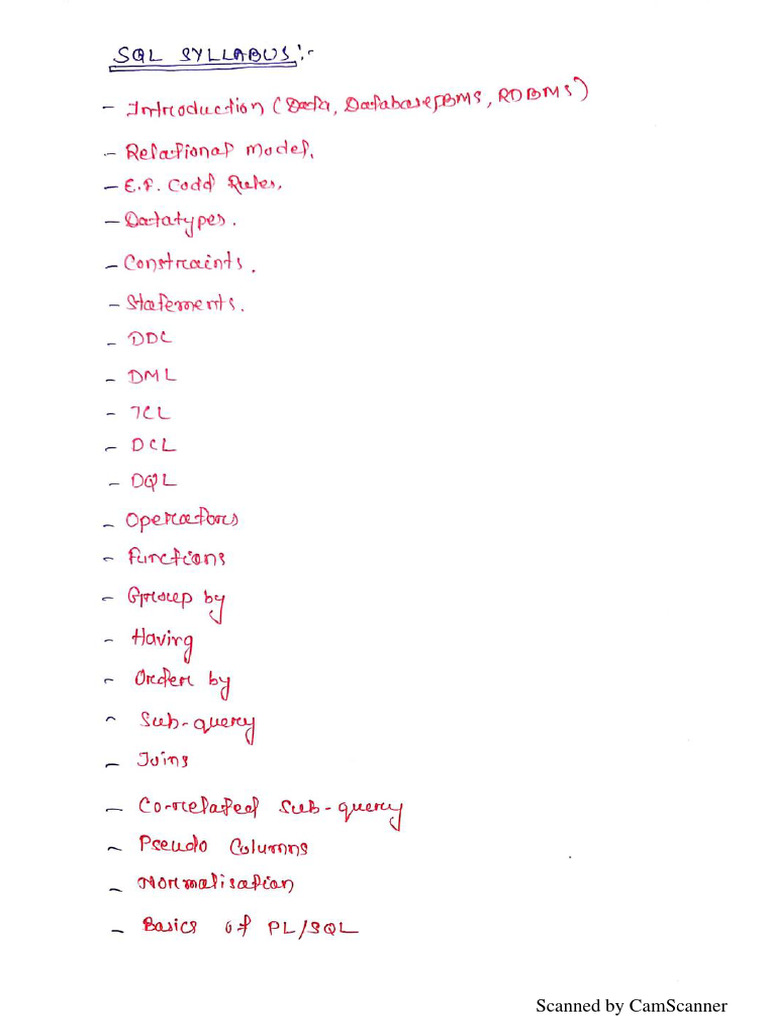 SQL SYLLABUS:-
- Introduction (Data, Database, DBMS, RDBMS)
- Relational Model.
- E.F. Codd Rules.
- Datatypes.
- Constraints.
- Statements.
- DDL
- DML
- TCL
- DCL
- DQL
- Operators
- Functions
- Group by
- Having
- Order by
- Sub-query
- Joins
- Co-related sub-query
- Pseudo Columns
- Normalisation
- Basics of PL/SQL
Scanned by CamScanner